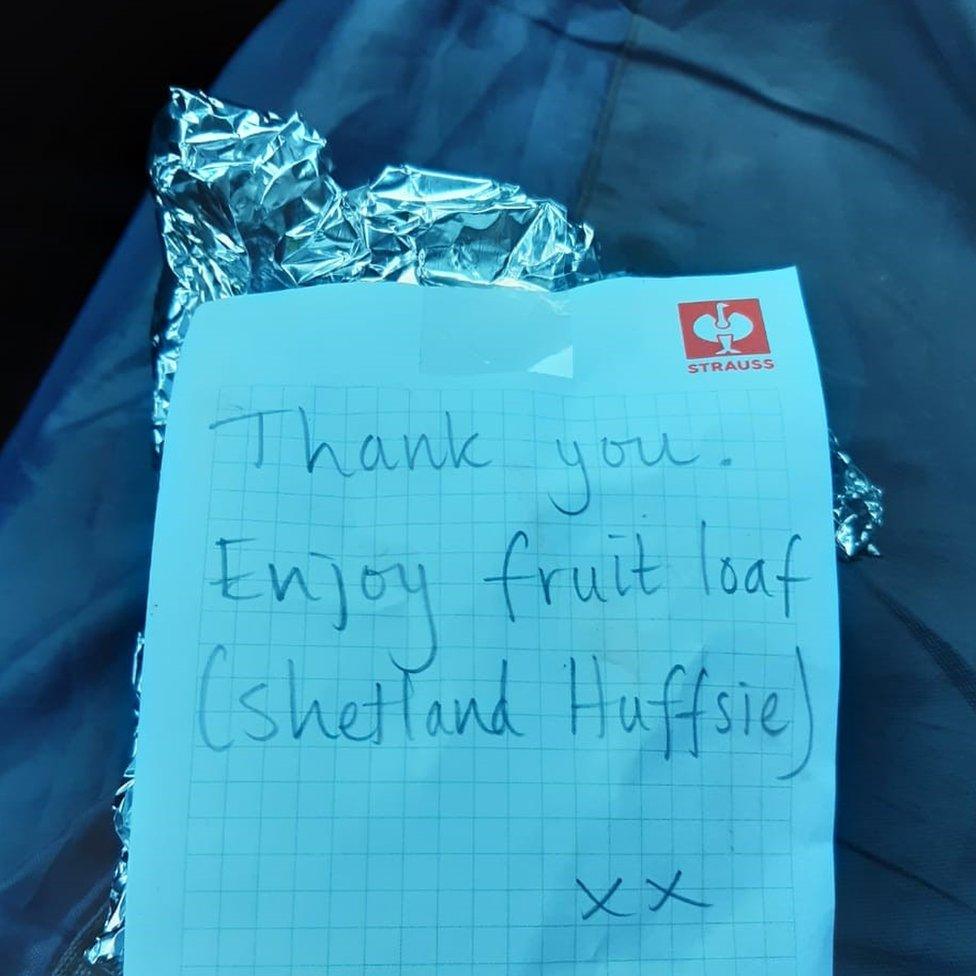 STRAUSS
Thank you.
Enjoy fruit loaf
(Shetland Huffsie)
xx